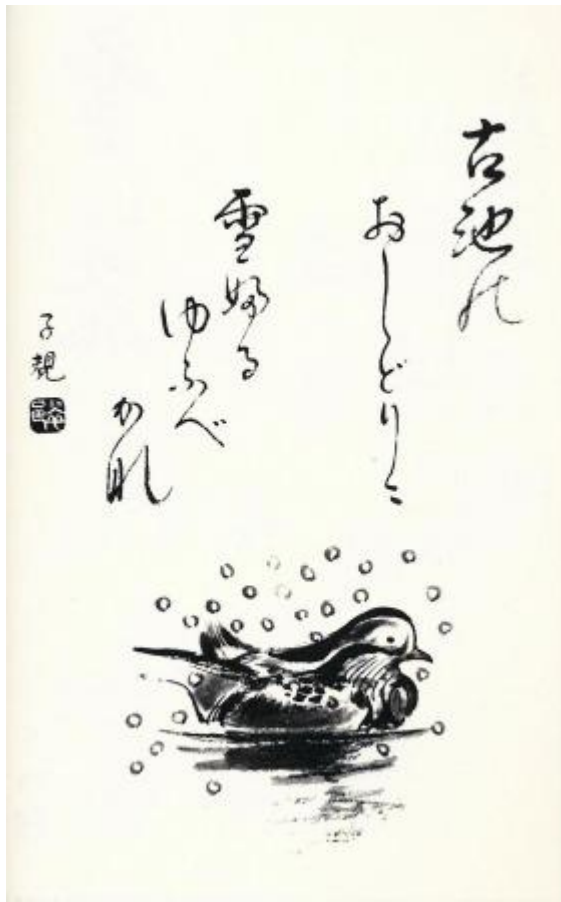 古池の
おしどりに
雪降る
ゆふべ
かな
子規